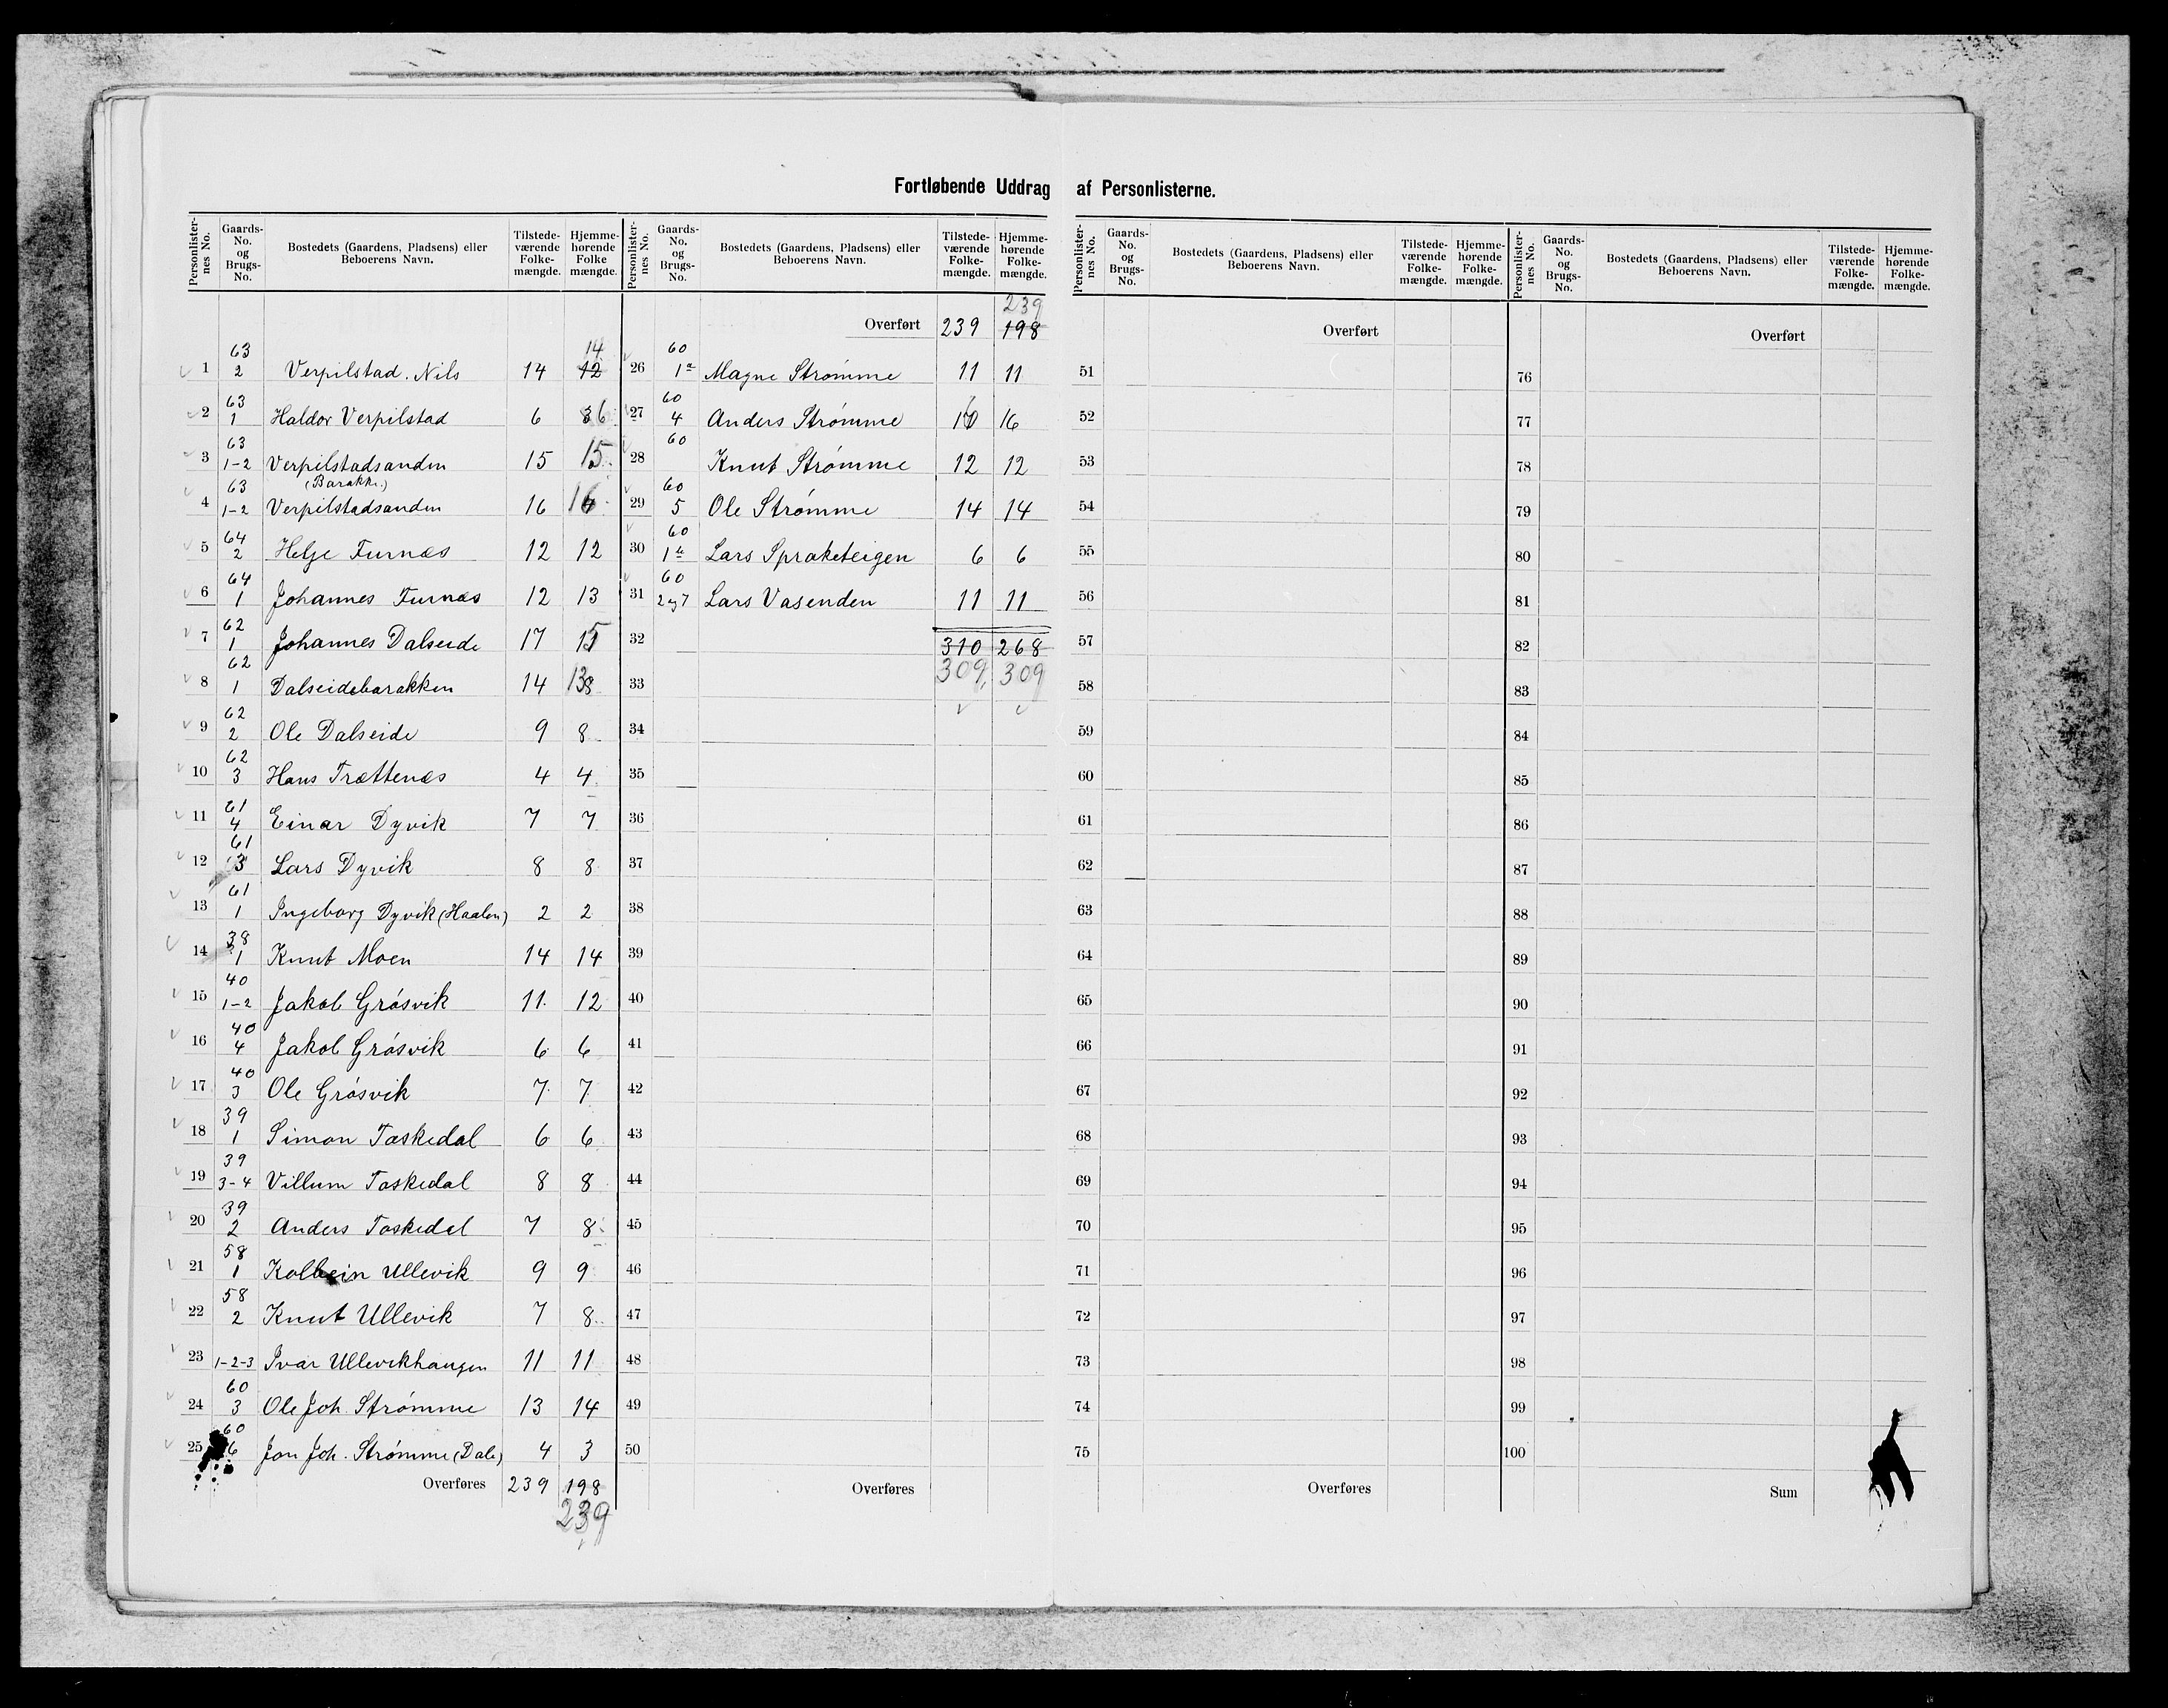 Fortløbende Uddrag af Personlisterne.
Personlister-nes No. | Gaards-No. og Brugs-No. | Bostedets (Gaardens, Pladsens) eller Beboerens Navn. | Tilstede-værende Folke-mængde. | Hjemme-hørende Folke mængde.
1 | 63 2 | Verpilstad. Nils | 14 | 12 14
2 | 63 1 | Haldor Verpilstad | 6 | 6
3 | 63 1-2 | Verpilstadsanden | 15 | 15
4 | 63 1-2 | (Barakke.) Verpilstadsanden | 16 | 16
5 | 64 2 | Helge Furnæs | 12 | 12
6 | 64 1 | Johannes Furnæs | 12 | 13
7 | 62 1 | Johannes Dalseide | 17 | 15
8 | 62 1 | Dalseidebarakken | 14 | 13
9 | 62 2 | Ole Dalseide | 9 | 8
10 | 62 3 | Hans Trættenæs | 4 | 4
11 | 61 4 | Einar Dyvik | 7 | 7
12 | 61 3 | Lars Dyvik | 8 | 8
13 | 61 1 | Ingeborg Dyvik (Haalen) | 2 | 2
14 | 38 1 | Knut Moen | 14 | 14
15 | 40 1-2 | Jakob Grøsvik | 11 | 12
16 | 40 4 | Jakob Grøsvik | 6 | 6
17 | 40 3 | Ole Grøsvik | 7 | 7
18 | 39 1 | Simon Taskedal | 6 | 6
19 | 39 3-4 | Villum Taskedal | 8 | 8
20 | 39 2 | Anders Taskedal | 7 | 8
21 | 58 1 | Kolbein Ullevik | 9 | 9
22 | 58 2 | Knut Ullevik | 7 | 8
23 | 1-2-3 | Ivar Ullevikhaugen | 11 | 11
24 | 60 3 | Ole Joh. Strømme | 13 | 14
25 | 60 6 | Jon Joh. Strømme (Dale) | 4 | 3
Overføres | 239 | 198
239
Personlister-nes No. | Gaards-No. og Brugs-No. | Bostedets (Gaardens, Pladsens) eller Beboerens Navn. | Tilstede-værende Folke-mængde. | Hjemme-hørende Folke-mængde.
239
Overført | 239 | 198
26 | 60 1a | Magne Strømme | 11 | 11
27 | 60 4 | Anders Strømme | 16 | 16
28 | 60 | Knut Strømme | 12 | 12
29 | 60 5 | Ole Strømme | 14 | 14
30 | 60 | Lars Spraketeigen | 6 | 6
31 | 60 2 og 7 | Lars Vasenden | 11 | 11
32 | 310 | 268
33 | 309, | 309
34
35
36
37
38
39
40
41
42
43
44
45
46
47
48
49
50
Overføres
Personlister-nes No. | Gaards-No. og Brugs-No. | Bostedets (Gaardens, Pladsens) eller Beboerens Navn. | Tilstede-værende Folke-mængde. | Hjemme-hørende Folke-mængde.
Overført
51
52
53
54
55
56
57
58
59
60
61
62
63
64
65
66
67
68
69
70
71
72
73
74
75
Overføres
Personlister-nes No. | Gaards-No. og Brugs-No. | Bostedets (Gaardens, Pladsens) eller Beboerens Navn. | Tilstede-værende Folke-mængde. | Hjemme-hørende Folke-mængde.
Overført
76
77
78
79
80
81
82
83
84
85
86
87
88
89
90
91
92
93
94
95
96
97
98
99
100
Sum